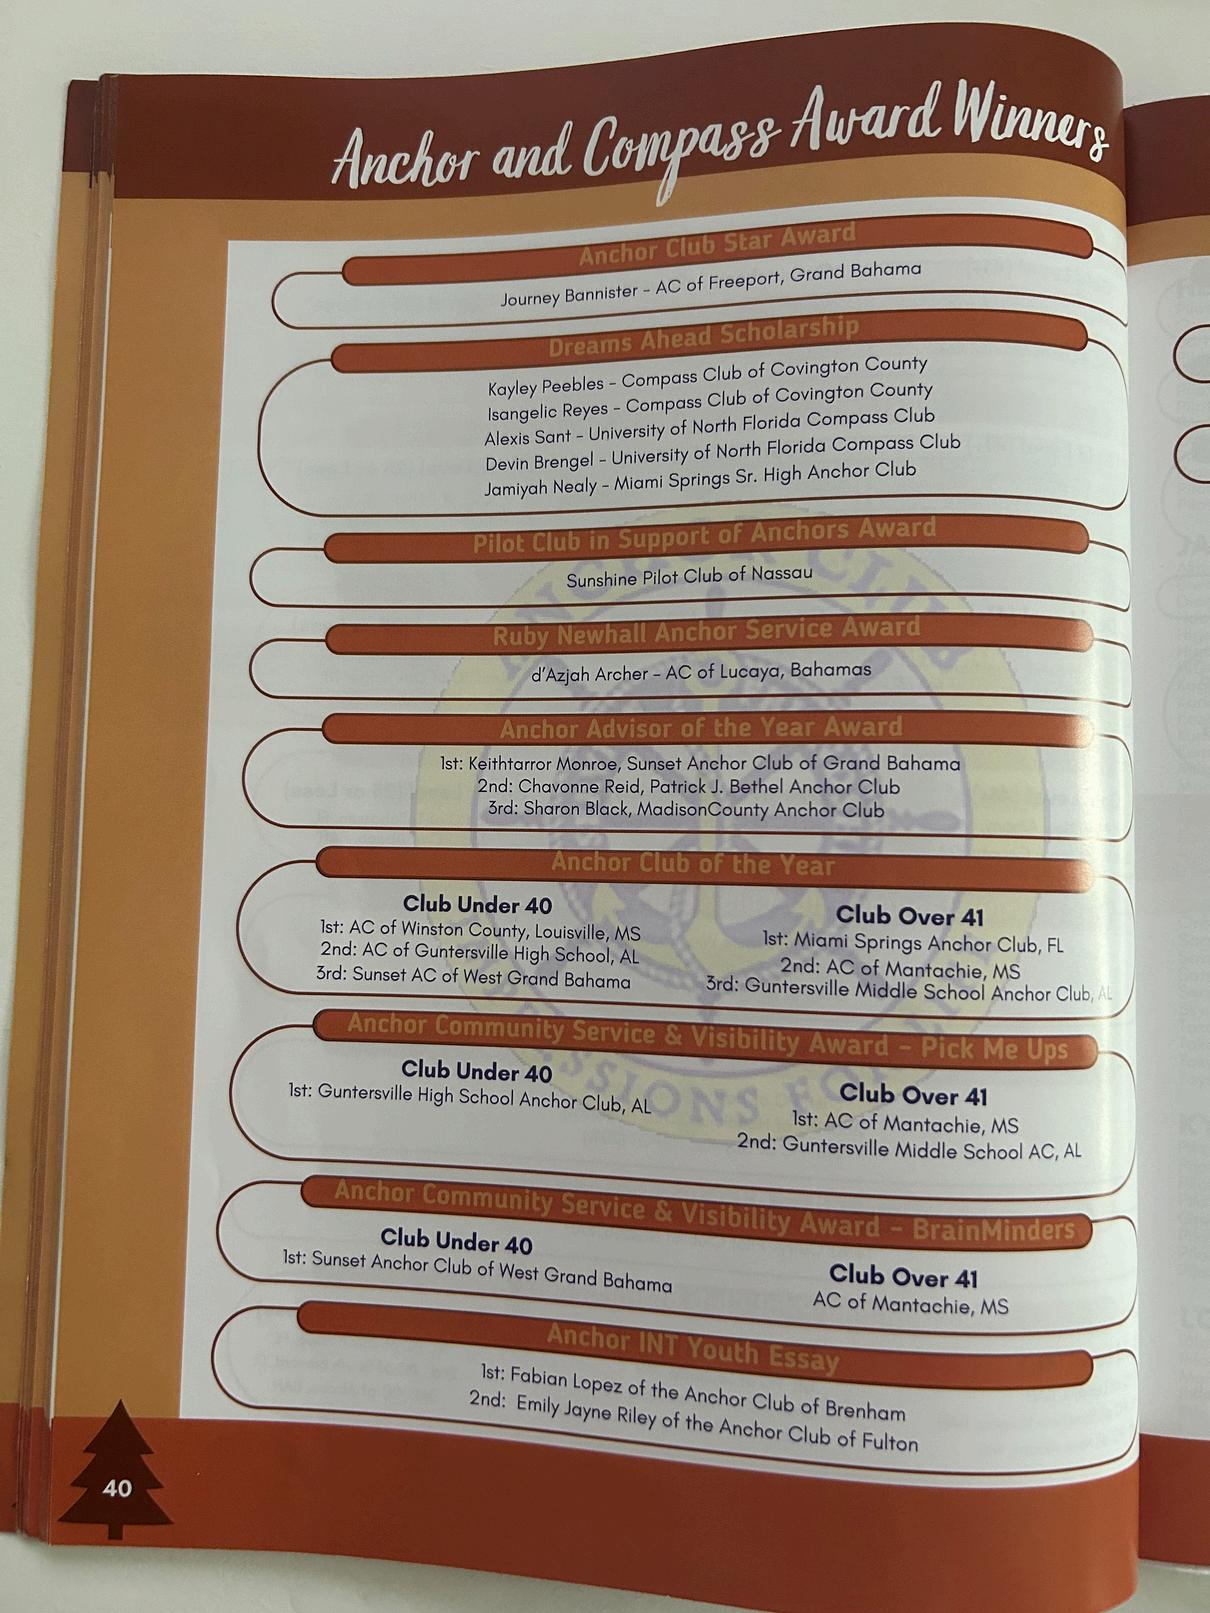 Anchor and Compass Award Winners
Anchor Club Star Award
Journey Bannister - AC of Freeport, Grand Bahama
Dreams Ahead Scholarship
Kayley Peebles - Compass Club of Covington County
Isangelic Reyes - Compass Club of Covington County
Alexis Sant - University of North Florida Compass Club
Devin Brengel - University of North Florida Compass Club
Jamiyah Nealy - Miami Springs Sr. High Anchor Club
Pilot Club in Support of Anchors Award
Sunshine Pilot Club of Nassau
Ruby Newhall Anchor Service Award
d'Azjah Archer - AC of Lucaya, Bahamas
Anchor Advisor of the Year Award
1st: Keithtarror Monroe, Sunset Anchor Club of Grand Bahama
2nd: Chavonne Reid, Patrick J. Bethel Anchor Club
3rd: Sharon Black, MadisonCounty Anchor Club
Anchor Club of the Year
Club Under 40
1st: AC of Winston County, Louisville, MS
2nd: AC of Guntersville High School, AL
3rd: Sunset AC of West Grand Bahama
Club Over 41
1st: Miami Springs Anchor Club, FL
2nd: AC of Mantachie, MS
3rd: Guntersville Middle School Anchor Club, AL
Anchor Community Service & Visibility Award - Pick Me Ups
Club Under 40
1st: Guntersville High School Anchor Club, AL
Club Over 41
1st: AC of Mantachie, MS
2nd: Guntersville Middle School AC, AL
Anchor Community Service & Visibility Award - BrainMinders
Club Under 40
1st: Sunset Anchor Club of West Grand Bahama
Club Over 41
AC of Mantachie, MS
Anchor INT Youth Essay
1st: Fabian Lopez of the Anchor Club of Brenham
2nd: Emily Jayne Riley of the Anchor Club of Fulton
40